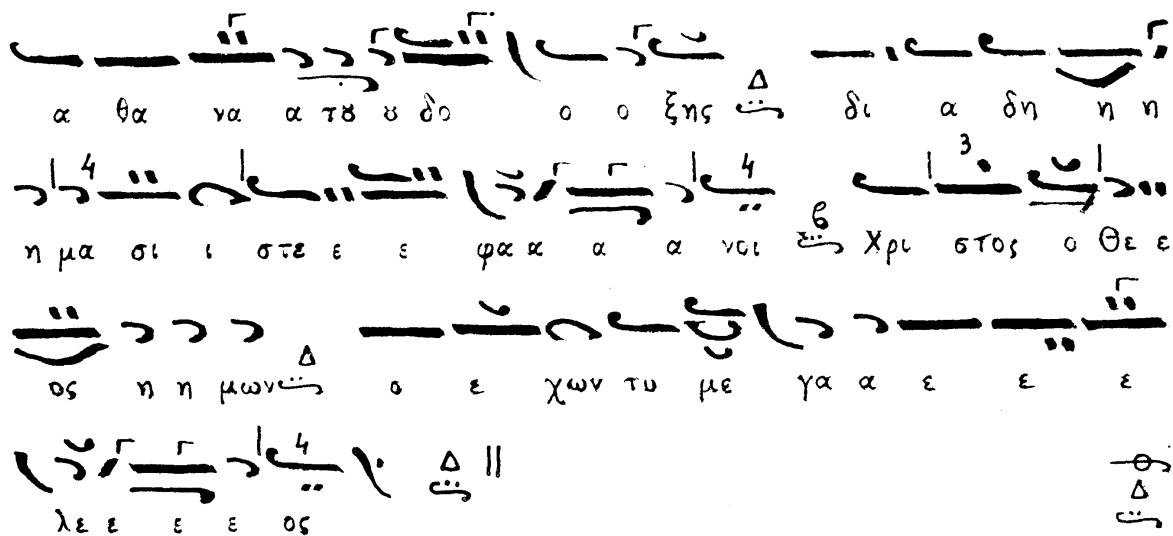 α θα να α του ου δο ο ο ξης Δ δι α δη η η
η μα σι ι στε ε ε φα α α α νοι Χρι στος ο Θε ε
ος η η μων Δ ο ε χων το με γα α ε ε ε
λε ε ε ε ος Δ Δ